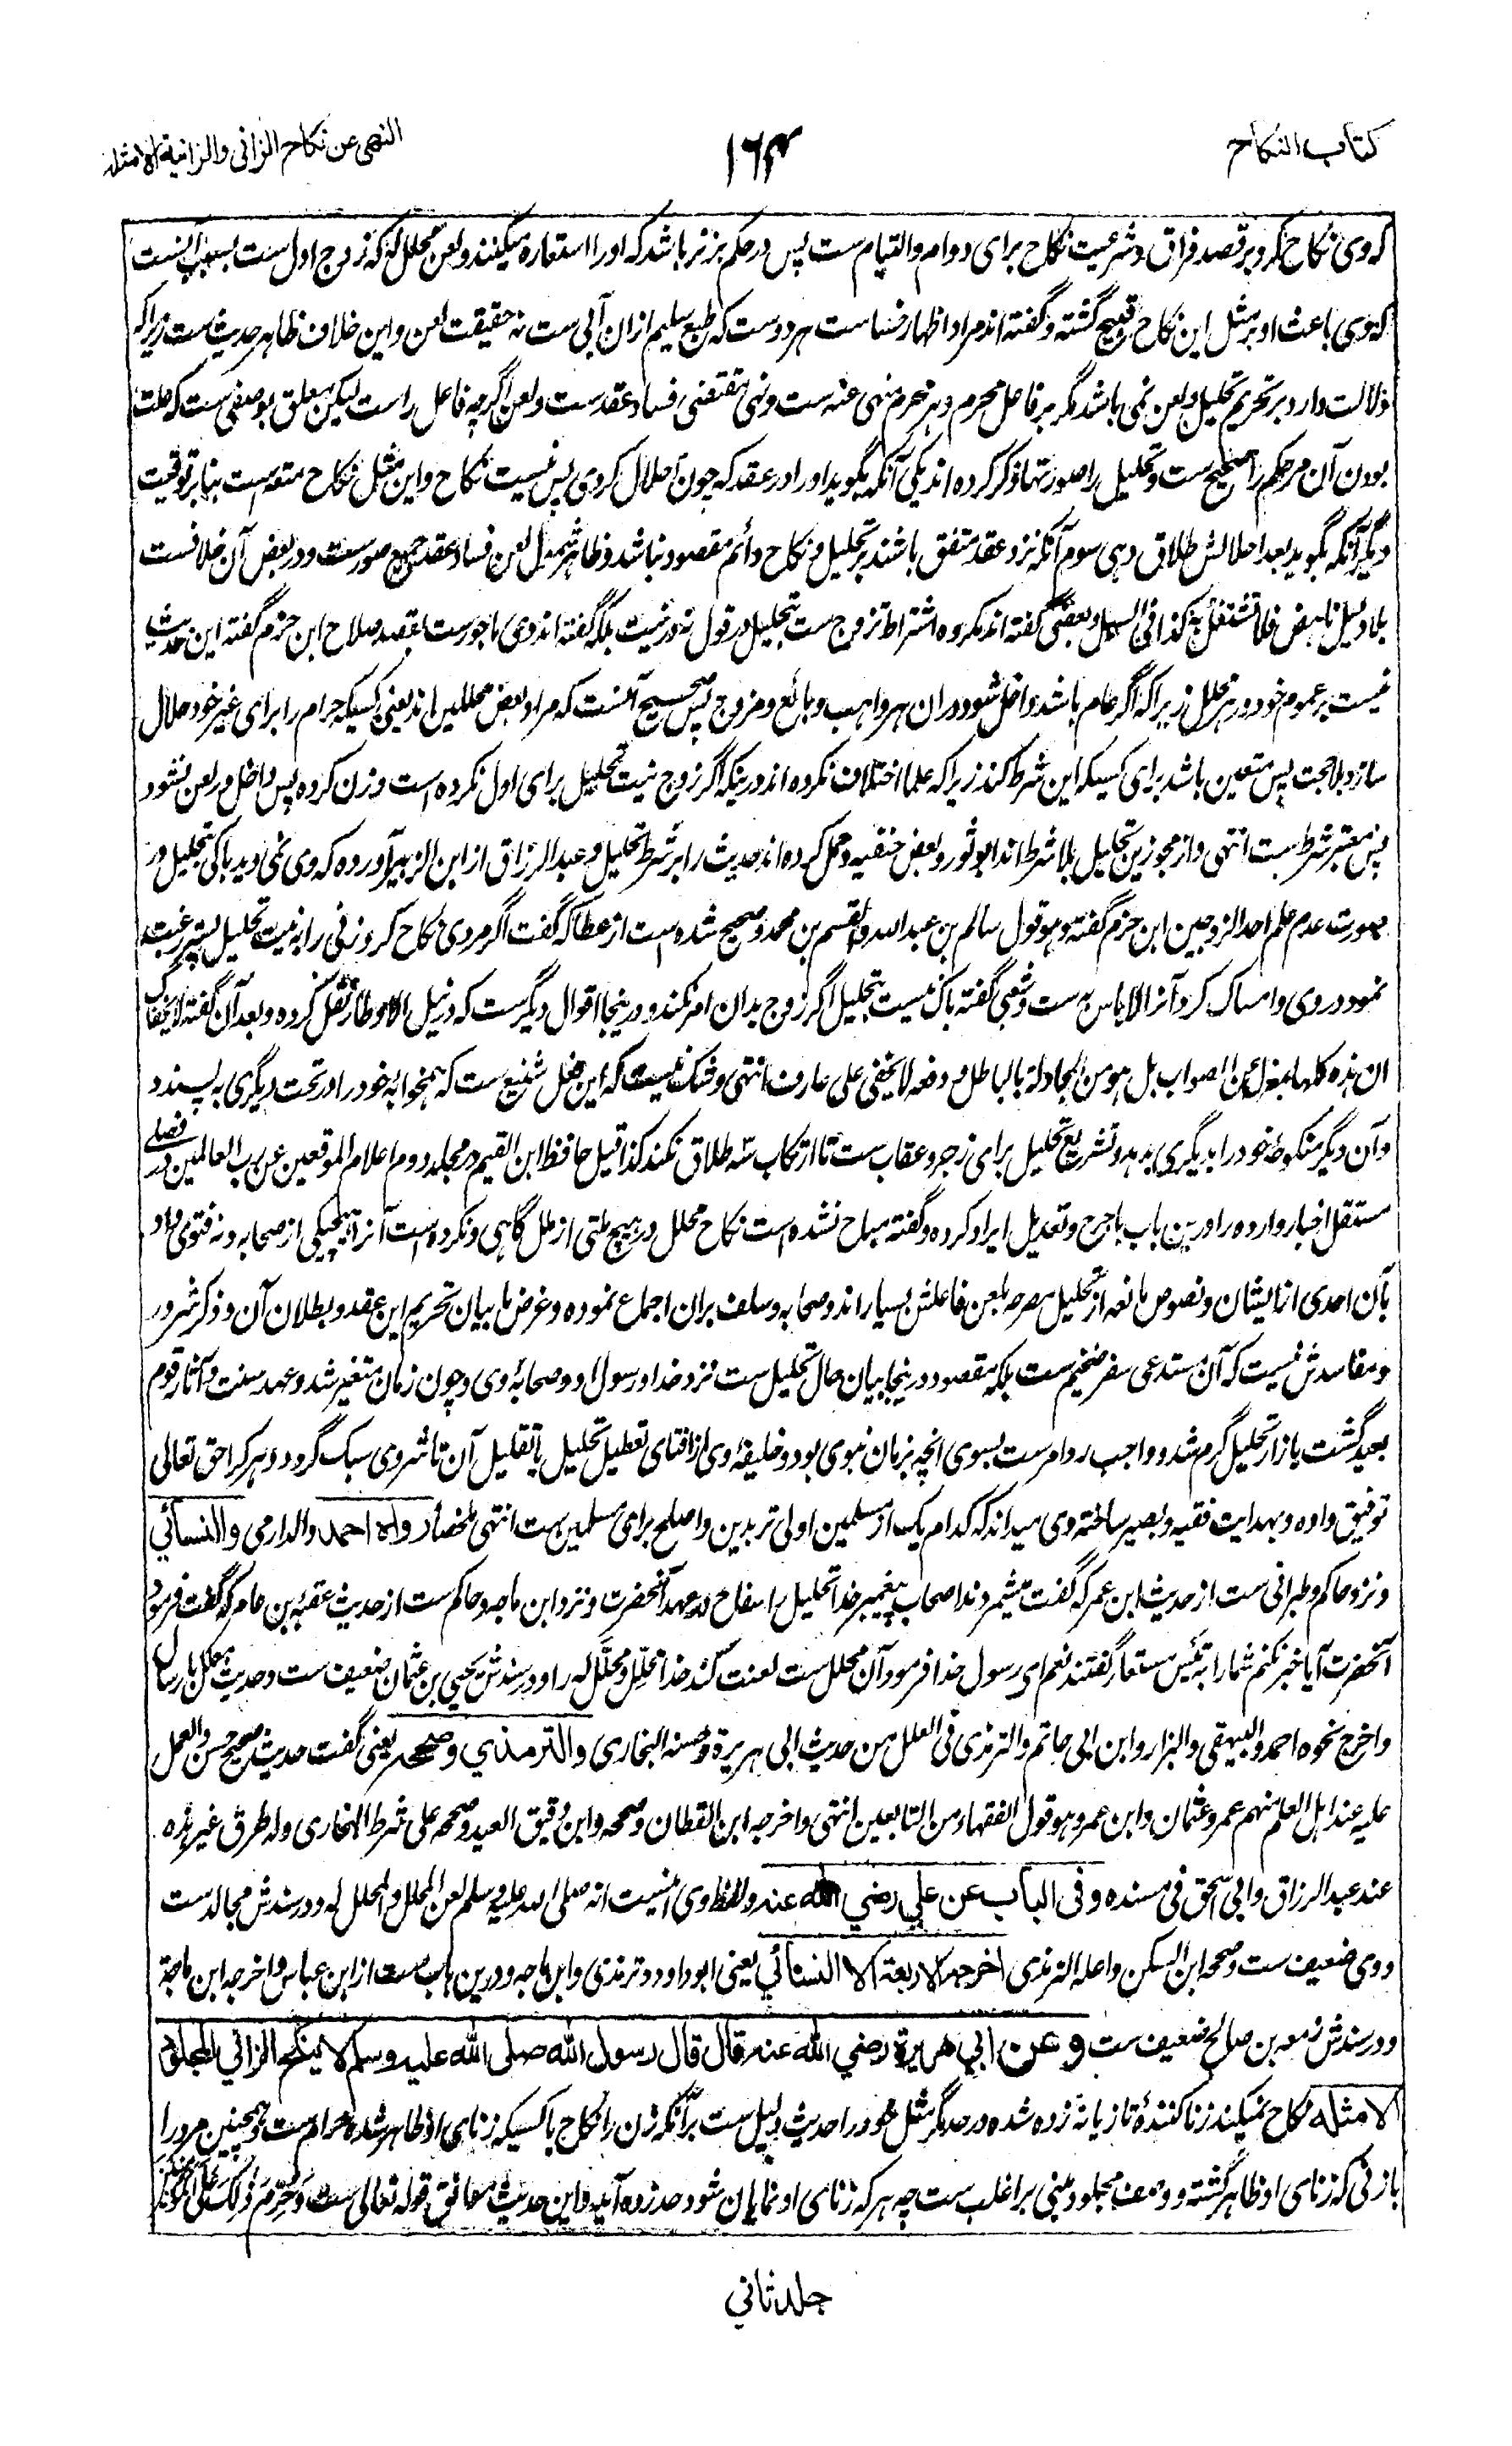 كتاب النكاح
١٦٤
النهي عن نكاح الزانى والزانية الا مثله
كه وى نكاح كرد بر قصد فراق و شرعيت نكاح براى دوام والتيام ست پس در حكم بز نر باشد كه او را استعاره ميكنند و لعن محلل له كه زوج اول ست بسبب آنست
كه وى باعث او بر مثل اين نكاح قبيح گشته و گفته اند مراد اظهار خساست هر دوست كه طبع سليم ازان آبى ست نه حقيقت لعن و اين خلاف ظاهر حديث ست زيراكه
دلالت دارد بر تحريم تحليل و لعن نمى باشد مگر بر فاعل محرم و هر محرم منهى عنه ست و نهى مقتضى فساد عقد ست و لعن اگرچه فاعل راست ليكن معلق بوصفى ست كه علت
بودن آن مر حكم را صحيح ست و تحليل را صورتها ذكر كرده اند يكى آنكه بگويد او را در عقد كه چون احلال كردى پس نيست نكاح و اين مثل نكاح متعه است بنابر توقيت
ديگر آنكه بگويد بعد احلالش طلاق دهى سوم آنكه نزد عقد متفق باشند بر تحليل و نكاح دائم مقصود نباشد و ظاهر شمول لعن فساد عقد جميع صورست و در بعض آن خلافست
بلا دليل ناهض فلا تشتغل به كذا فى السبل و بعضى گفته اند مكروه اشتراط تزوج ست بتحليل در قول نه در نيت بلكه گفته اند وى ماجورست بقصد صلاح ابن حزم گفته اين حديث
نيست بر عموم خود در هر محلل زيرا كه اگر عام باشد داخل شود دران هر واهب و بائع و مزوج پس صحيح آنست كه مراد بعض محللين اند يعنى كسيكه حرام را براى غير خود حلال
سازد بلا حجت پس متعين باشد براى كسيكه اين شرط كند زيرا كه علما اختلاف نكرده اند در ينكه اگر زوج نيت تحليل براى اول نكرده است و زن كرده پس داخل در لعن نشود
پس معتبر شرط ست انتهى و از مجوزين تحليل بلا شرط اند ابو ثور و بعض حنفيه و حمل كرده اند حديث را بر شرط تحليل و عبد الرزاق از ابن الزبير آورده كه وى نمى ديد باكى بتحليل در
صورت عدم علم احد الزوجين ابن حزم گفته و هو قول سالم بن عبدالله والقسم بن محمد و صحيح شده است از عطا كه گفت اگر مردى نكاح كرد زنى را به نيت تحليل پستر رغبت
نمود در وى و امساك كرد آنرا لا باس به ست و شعبى گفته باك نيست بتحليل اگر زوج بدان امر نكند و درينجا اقوال ديگرست كه در نيل الاوطار نقل كرده و بعد آن گفته لا يخفاك
ان هذه كلها بمعزل عن الصواب بل هو من المجادلة بالباطل و دفعه لا يخفى على عارف انتهى و شك نيست كه اين فعل شنيع ست كه همخوابه خود را در تحت ديگرى به پسندد
و آن ديگر منكوحه خود را بديگرى بدهد و تشريع تحليل براى زجر و عقاب ست تا ارتكاب سه طلاق نكند كذا قيل حافظ ابن القيم در مجلد دوم اعلام الموقعين عن رب العالمين در فصلى
مستقل اخبار وارده را درين باب با جرح و تعديل ايراد كرده و گفته مباح نشده است نكاح محلل در هيچ ملتى از ملل گاهى و نكرده است آنرا هيچيكى از صحابه و نه فتوى داد
بآن احدى از ايشان و نصوص مانعه از تحليل مصرحه بلعن فاعلش بسيار اند و صحابه و سلف بران اجماع نموده و غرض ما بيان تحريم اين عقد و بطلان آن و ذكر شرور
و مفاسدش نيست كه آن مستدعى سفر ضخيم ست بلكه مقصود درينجا بيان حال تحليل ست نزد خدا و رسول او و صحابهٔ وى و چون زمان متغير شد و عهد سنت و آثار قوم
بعيد گشت بازار تحليل گرم شد و واجب رد امر ست بسوى انچه بزمان نبوى بود و خليفهٔ وى از افتاى تعطيل تحليل يا تقليل آن تا شر وى سبك گردد و هر كرا حق تعالى
توفيق داده و بهدايت فقيه و بصير ساخته وى ميداند كه كدام يك از مسلمين اولى تر بدين و اصلح براى مسلمين ست انتهى ملخصا رواه احمد والدارمى والنسائي
و نزد حاكم و طبرانى ست از حديث ابن عمر كه گفت ميشمردند اصحاب پيغمبر خدا تحليل را سفاح در عهد آنحضرت و نزد ابن ماجه و حاكم ست از حديث عقبه بن عامر كه گفت فرمود
آنحضرت آيا خبر نكنم شما را به تيس مستعار گفتند نعم اى رسول خدا فرمود آن محلل ست لعنت كند خدا محلِّل و محلَّل له را و در سندش يحيى بن عثمان ضعيف ست و حديث معلل بارسال
و اخرج نحوه احمد والبيهقى والبزار و ابن ابى حاتم والترمذى فى العلل من حديث ابى هريرة و حسنه البخارى والترمذي وصححه يعنى گفت حديث صحيح حسن والعمل
عليه عند اهل العلم منهم عمر و عثمان و ابن عمر و هو قول الفقهاء من التابعين انتهى و اخرجه ابن القطان و صححه و ابن دقيق العيد و صححه على شرط البخارى وله طرق غير هذه
عند عبد الرزاق و ابى اسحق فى مسنده وفى الباب عن علي رضي الله عنه و لفظ وى اينست انه صلى الله عليه وسلم لعن المحلل والمحلل له و در سندش مجالد ست
و وى ضعيف ست و صححه ابن السكن و اعله الترمذى اخرجه الاربعة الا النسائي يعنى ابوداود و ترمذى و ابن ماجه و درين باب ست از ابن عباس و اخرجه ابن ماجة
و در سندش زمعه بن صالح ضعيف ست وعن ابي هريرة رضي الله عنه قال قال رسول الله صلى الله عليه وسلم لا ينكح الزاني المجلود
الا مثله نكاح نميكند زنا كنندهٔ تازيانه زده شده در حد مگر مثل خود را حديث دليل ست بر آنكه زن را نكاح با كسيكه زناى او ظاهر شده حرام ست و همچنين مرد را
با زنى كه زناى او ظاهر گشته و وصف مجلود مبنى بر اغلب ست چه هر كه زناى او نمايان شود حد زده آيد و اين حديث موافق قوله تعالى ست وَحُرِّمَ ذٰلِكَ عَلَى الْمُؤْمِنِيْنَ
جلد ثاني